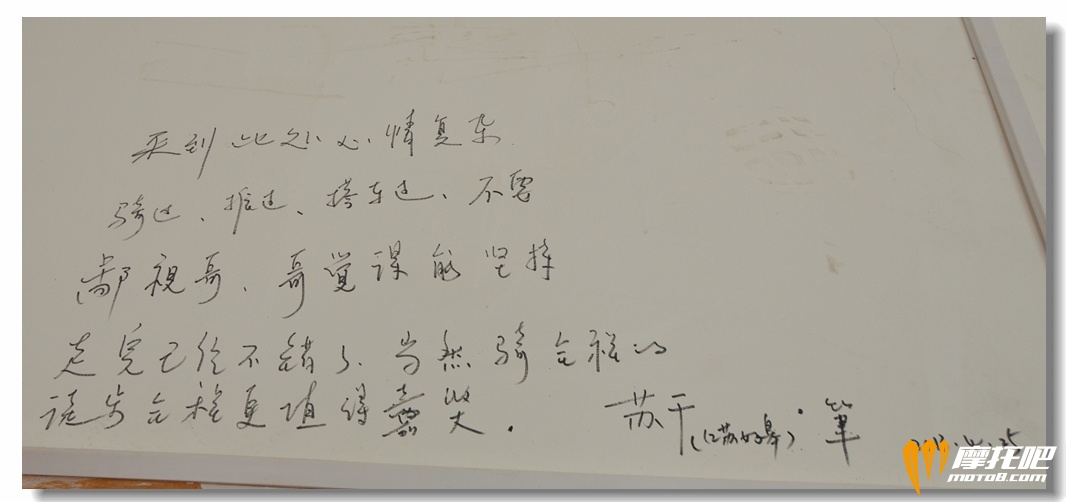 来到此处心情复杂
骑过、推过、搭车过、不要
鄙视哥、哥觉得能坚持
走完已经不错了、当然骑全程的
徒步全程更值得嘉奖.
苏干(江苏如皋)笔
摩托吧
moto8.com